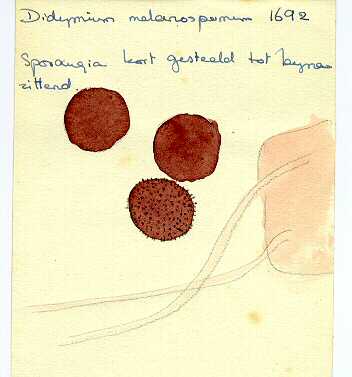 Didymium melanospermum 1692
Sporangia kort gesteeld tot byna
zittend.